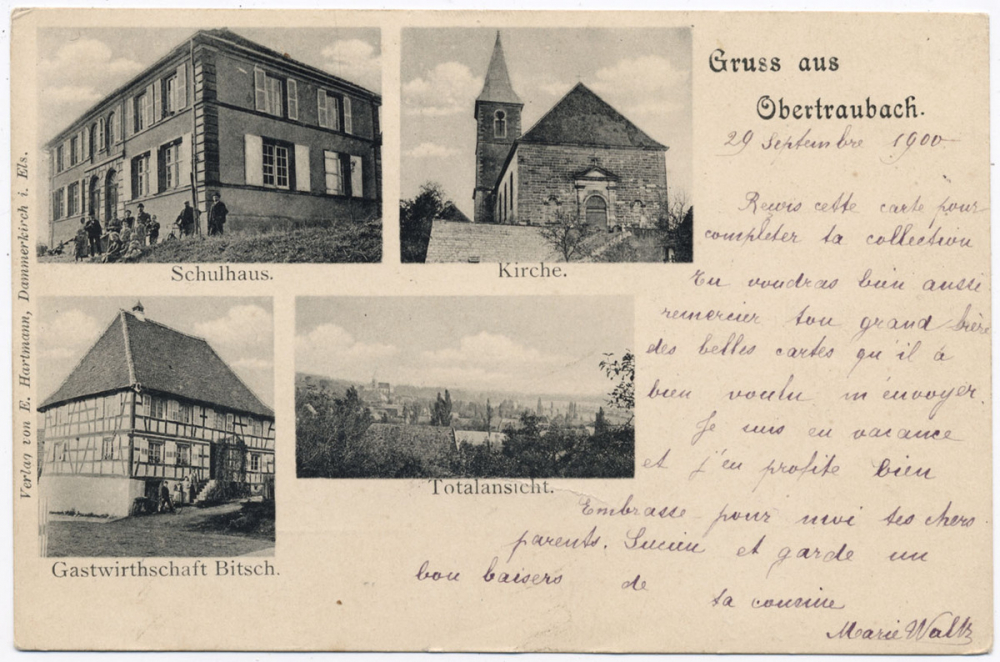 Gruss aus
Obertraubach.
29 Septembre 1900
Reçois cette carte pour
completer ta collection
Tu voudras bien aussi
remercier ton grand-frère
des belles cartes qu'il à
bien voulu m'envoyer.
Je suis en vacance
et j'en profite bien
Embrasse pour moi tes chers
parents. Lucien et garde un
bon baisers de
ta cousine
Marie Waltz
Schulhaus.
Kirche.
Gastwirthschaft Bitsch.
Totalansicht.
Verlag von E. Hartmann, Dammerkirch i. Els.